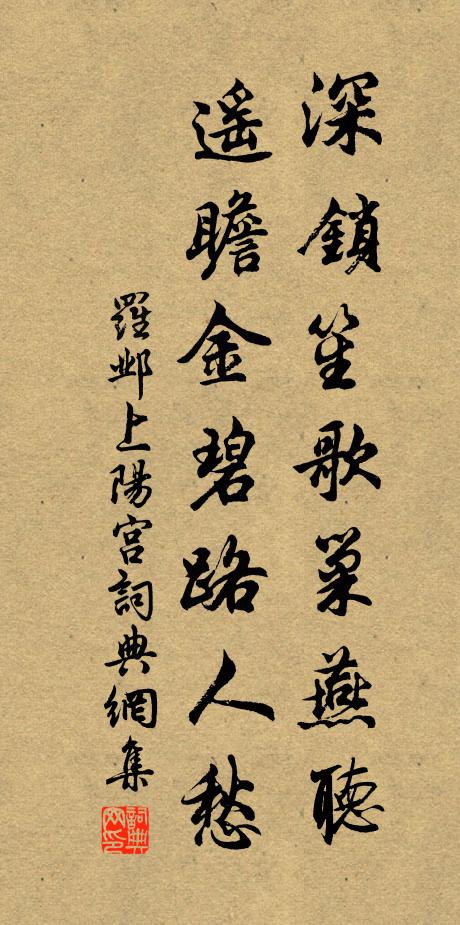 深鎖笙歌巢燕聽
遙瞻金碧路人愁
羅鄴上陽宮詞典網集
詞典網印